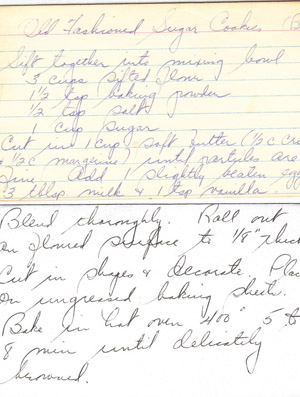 Old Fashioned Sugar Cookies (B
Sift together into mixing bowl
3 cups sifted flour
1½ tsp baking powder
½ tsp salt
1 cup sugar
Cut in 1 cup soft butter (½ c Cri
& ½ c margarine) until particles are
fine. Add 1 slightly beaten egg
3 tblsp. milk & 1 tsp vanilla.
Blend thoroughly. Roll out
on floured surface to 1/8" thick
Cut in shapes & decorate. Plac
on ungreased baking sheets.
Bake in hot oven 400° 5 to
8 min until delicately
browned.